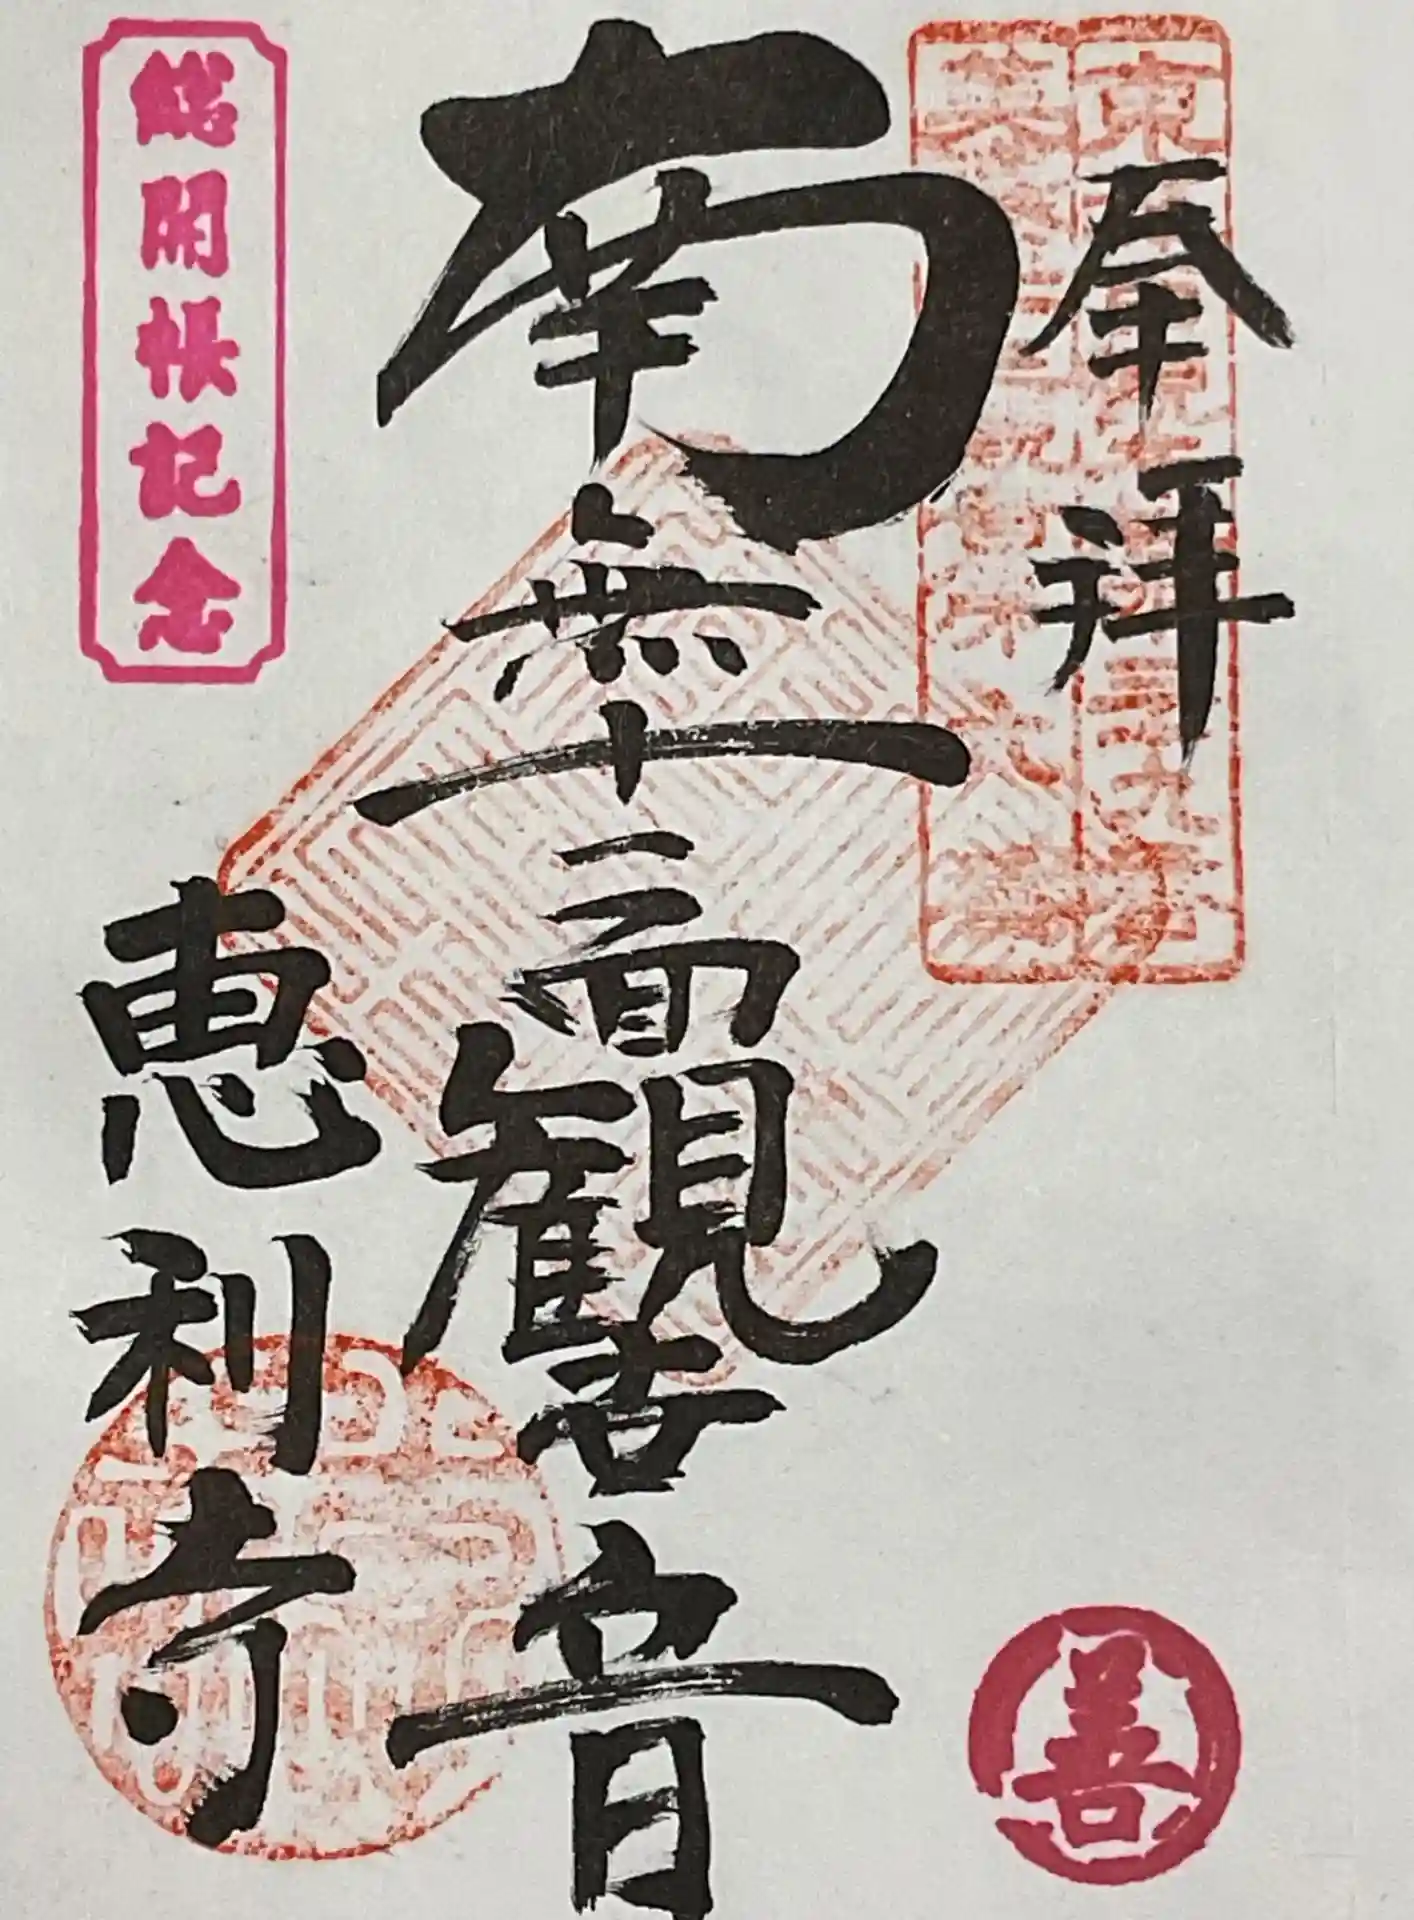 奉拝
南無十一面観世音
恵利寺
総開帳記念
善